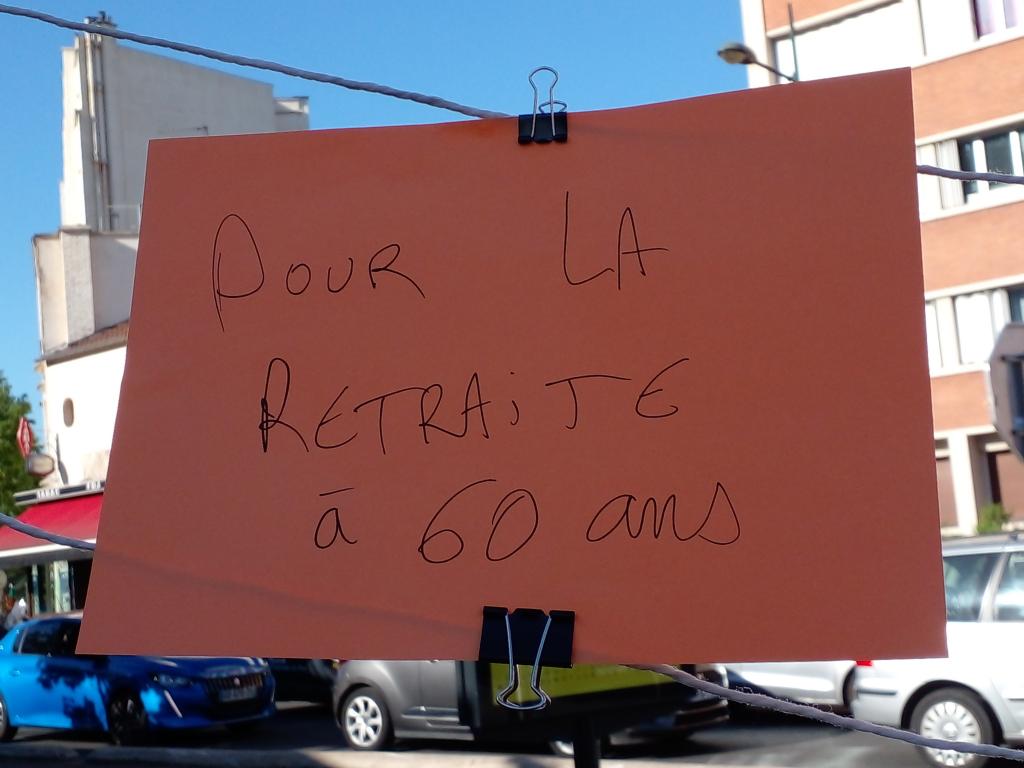 POUR LA
RETRAiTE
à 60 ans